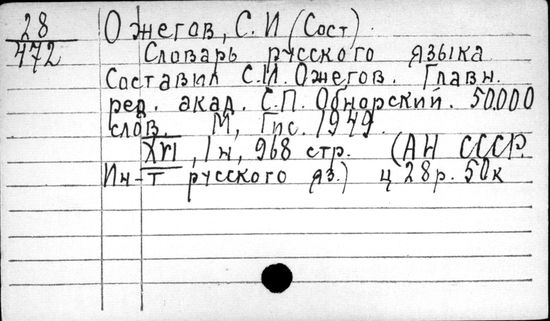 28
472
Ожегов, С. И (Сост)
Словарь русского языка
Составил С.И. Ожегов. Главн.
ред. акад. С.П. Обнорский. 50.000
слов. М, Гис. 1949.
XVI, 1н, 968 стр. (АН СССР.
Ин-т русского яз.) ц 28р. 50к